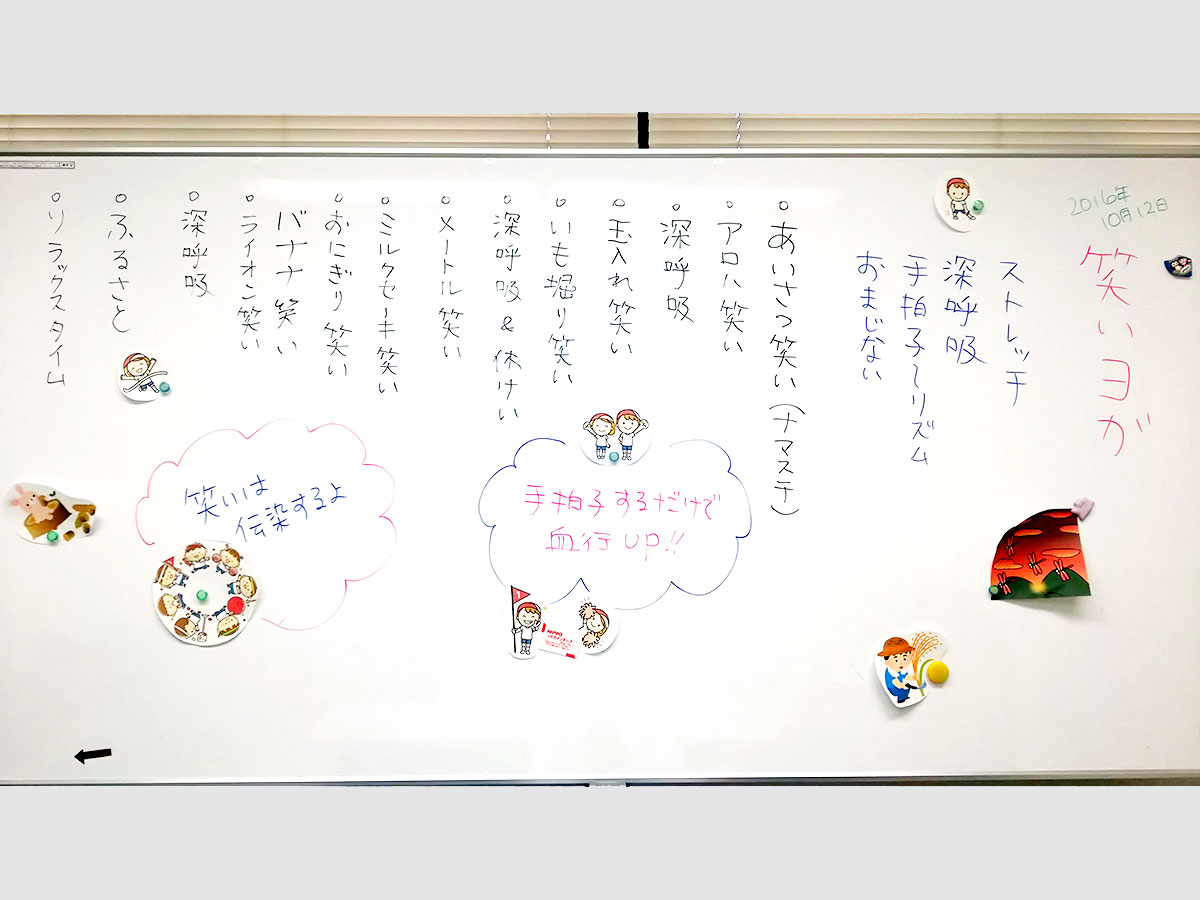 2016年
10月12日
笑いヨガ
ストレッチ
深呼吸
手拍子〜リズム
おまじない
○あいさつ笑い(ナマステ)
○アロハ笑い
○深呼吸
○玉入れ笑い
○いも堀り笑い
○深呼吸&休けい
○メートル笑い
○ミルクセーキ笑い
○おにぎり笑い
バナナ笑い
○ライオン笑い
○深呼吸
○ふるさと
○リラックスタイム
手拍子するだけで
血行up!!
1
笑いは
伝染するよ